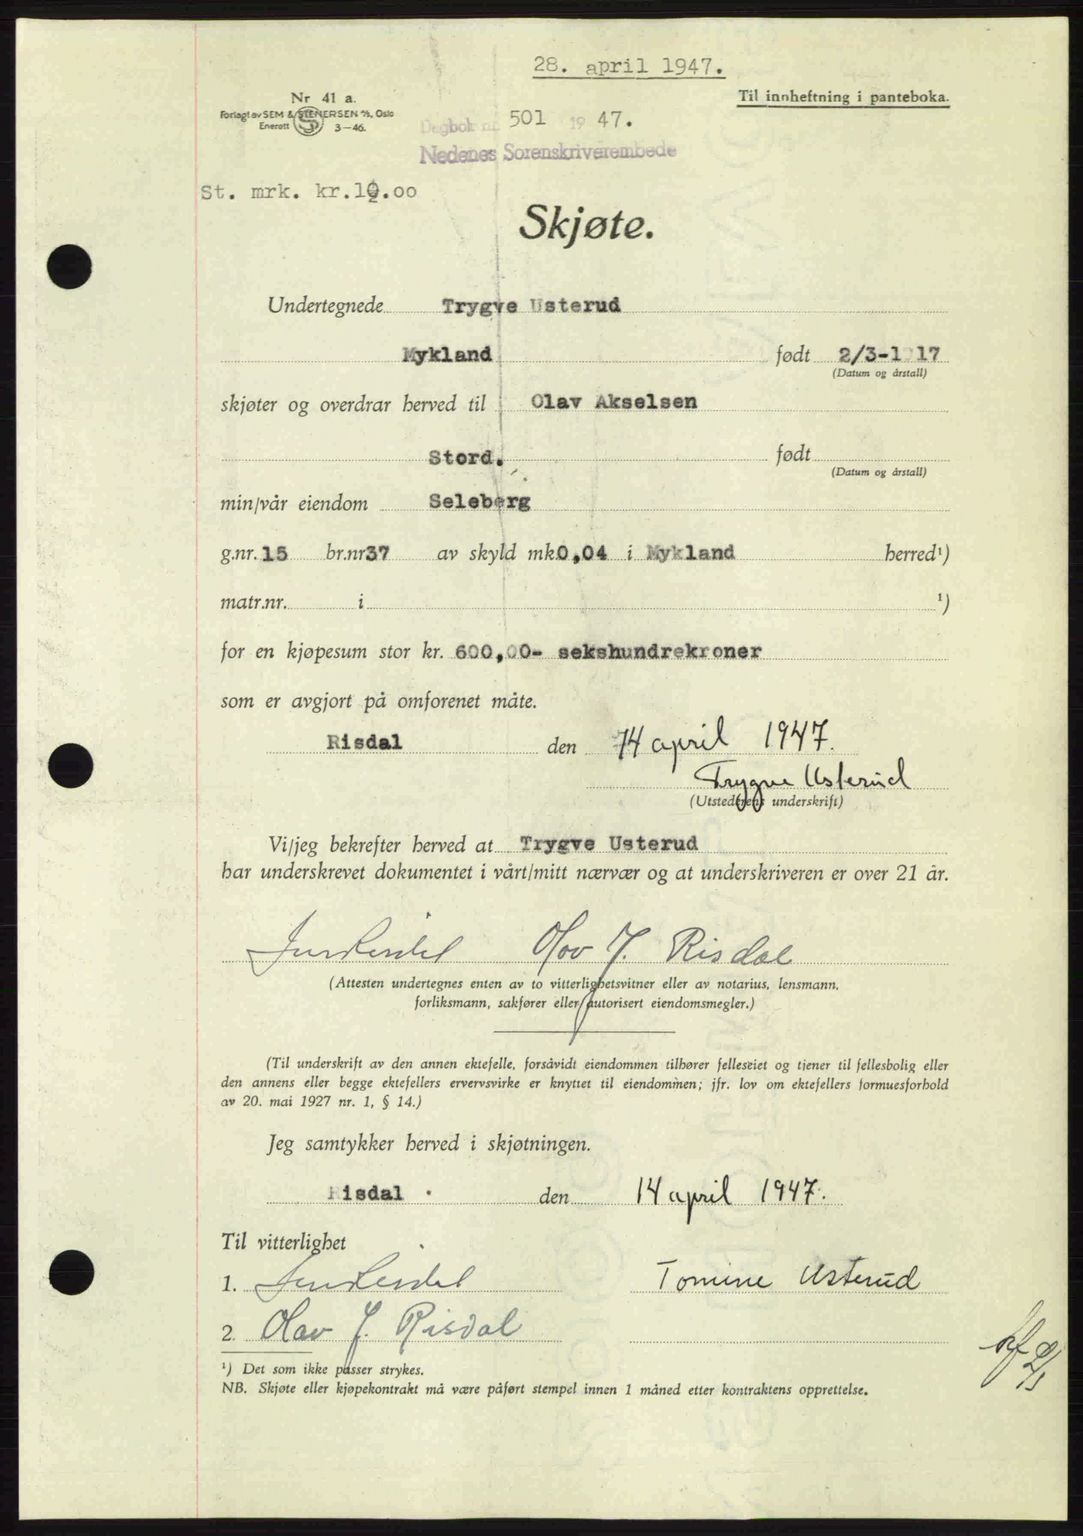 28. april 1947.
Nr 41 a.
Til innheftning i panteboka.
Forlagt av SEM & STENERSEN A/S, Oslo
Enerett 3-46.
Dagbok nr. 501 1947.
Nedenes Sorenskriverembede
St. mrk. kr.10.00
Skjøte.
Undertegnede Trygve Usterud
Mykland født 2/3-1917
(Datum og årstall)
skjøter og overdrar herved til Olav Akselsen
Stord. født
(Datum og årstall)
min/vår eiendom Seleberg
g.nr. 15 br.nr 37 av skyld mk. 0,04 i Mykland herred¹)
matr.nr. i ¹)
for en kjøpesum stor kr. 600,00- sekshundrekroner
som er avgjort på omforenet måte.
Risdal den 14 april 1947.
Trygve Usterud
(Utstederens underskrift)
Vi/jeg bekrefter herved at Trygve Usterud
har underskrevet dokumentet i vårt/mitt nærvær og at underskriveren er over 21 år.
Olav J. Risdal
(Attesten undertegnes enten av to vitterlighetsvitner eller av notarius, lensmann,
forliksmann, sakfører eller autorisert eiendomsmegler.)
(Til underskrift av den annen ektefelle, forsåvidt eiendommen tilhører felleseiet og tjener til fellesbolig eller
den annens eller begge ektefellers ervervsvirke er knyttet til eiendommen; jfr. lov om ektefellers formuesforhold
av 20. mai 1927 nr. 1, § 14.)
Jeg samtykker herved i skjøtningen.
Risdal den 14 april 1947.
Til vitterlighet
1. Tomine Usterud
2. Olav J. Risdal
¹) Det som ikke passer strykes.
NB. Skjøte eller kjøpekontrakt må være påført stempel innen 1 måned etter kontraktens opprettelse.